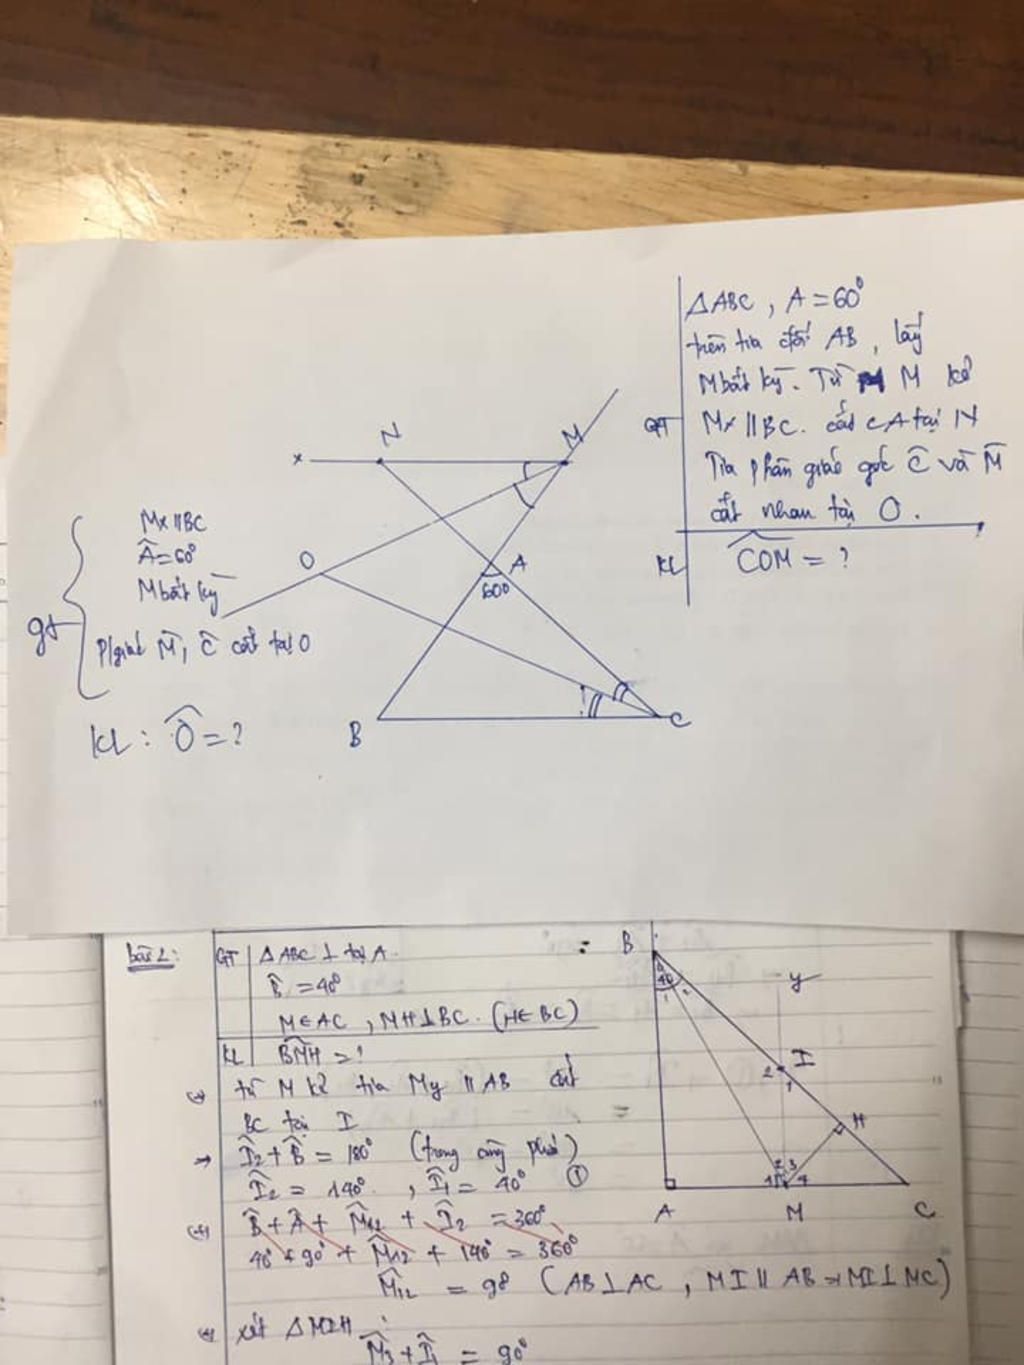 ΔABC, A = 60⁰
trên tia đối AB, lấy
M bất kỳ. Từ M kẻ
GT Mx // BC. cắt CA tại N
Tia phân giác góc Ĉ và M̂
cắt nhau tại O.
KL ∠COM = ?
N
M
x
O
A
60⁰
B
C
gt
Mx // BC
Â = 60⁰
M bất kỳ
P/giác M̂, Ĉ cắt tại O
KL : Ô = ?
bài 2:
GT ΔABC ⊥ tại A.
B̂ = 40⁰
M ∈ AC, MH ⊥ BC. (H ∈ BC)
KL ∠BMH = ?
từ M kẻ tia My // AB cắt
BC tại I
→ Î₂ + B̂ = 180⁰ (trong cùng phía)
Î₂ = 140⁰, Î₁ = 40⁰ ①
B̂ + Â + M̂₁₂ + Î₂ = 360⁰
40⁰ + 90⁰ + M̂₁₂ + 140⁰ = 360⁰
M̂₁₂ = 90 (AB ⊥ AC, MI // AB → MI ⊥ MC)
xét ΔMIH :
M̂₃ + Î₁ = 90⁰
B
40
1
2
y
I
2
1
H
1
2
3
4
A
M
C